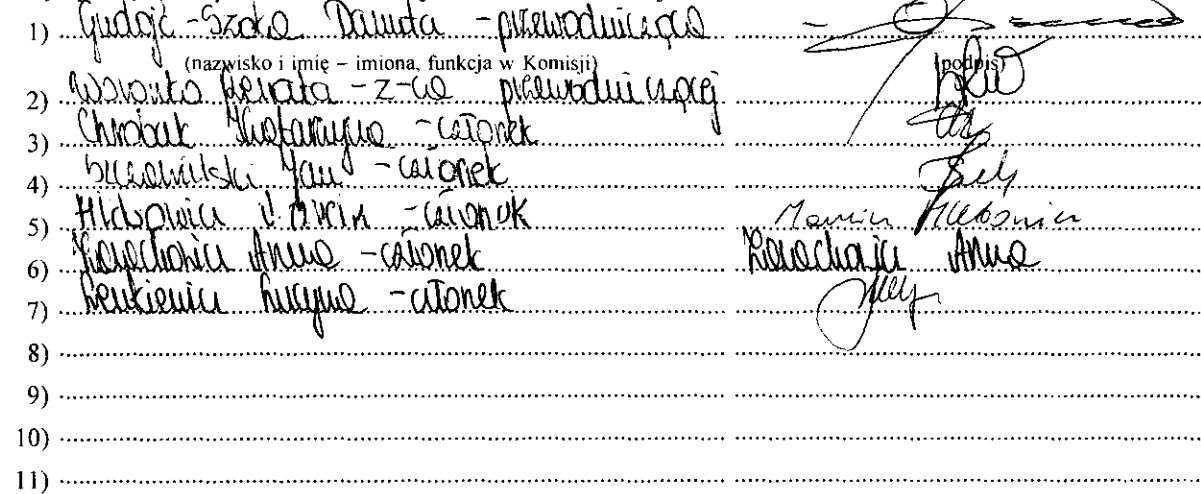 1) Gudojć-Szoka Danuta - przewodnicząca
(nazwisko i imię – imiona, funkcja w Komisji) (podpis)
2) Woronko Renata - z-ca przewodniczącej
3) Chrobak Katarzyna - członek
4) Jan - członek
5) Hlebowicz Marcin - członek Marcin Hlebowicz
6) Anna - członek Anna
7) Lucyna - członek
8)
9)
10)
11)